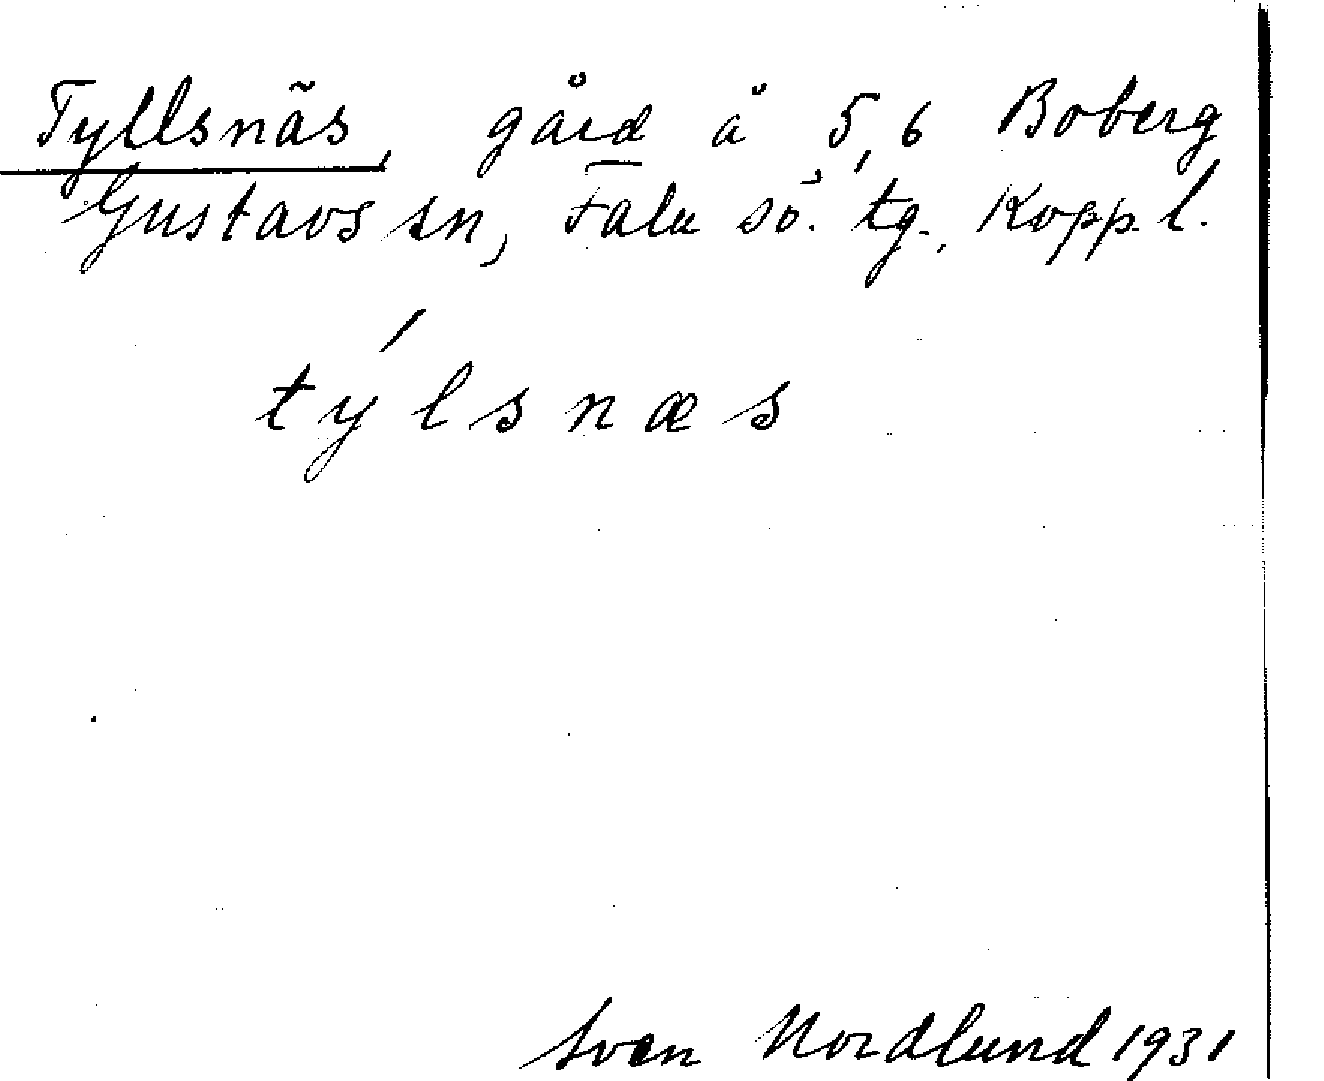 Tyllsnäs, gård å 5,6 Boberg
Gustavs sn, Falu sö. tg., Koppl.
týlsnæs
Sven Nordlund 1931